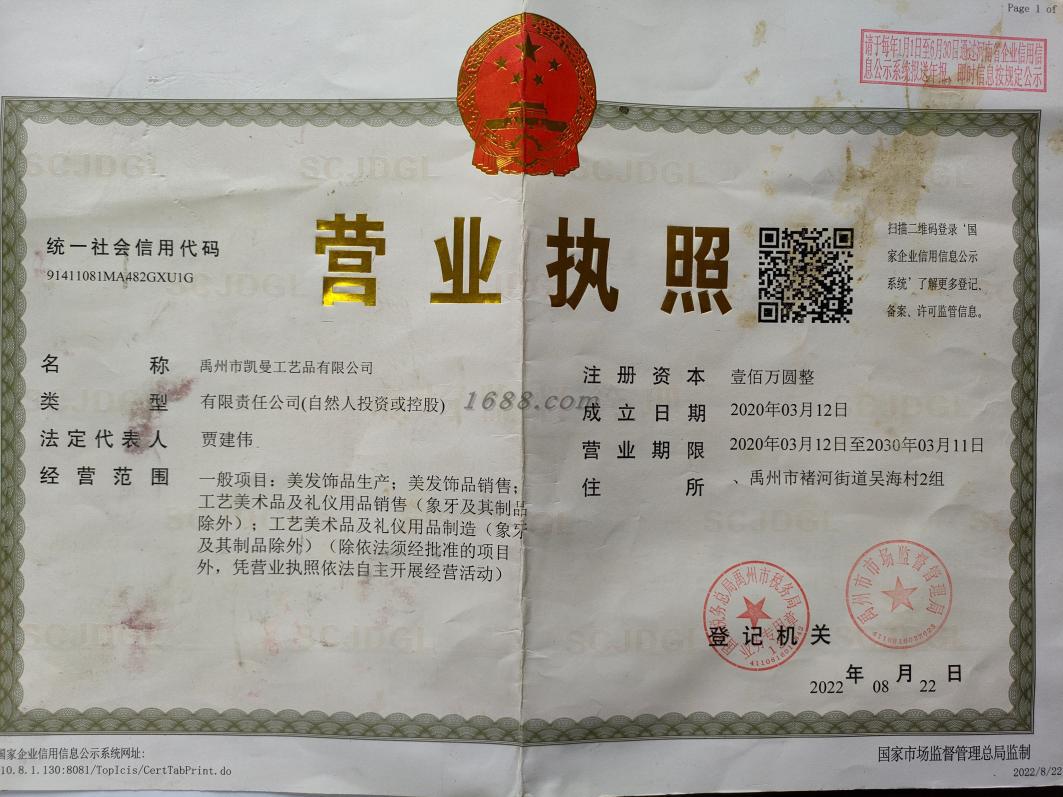 Page 1 of
请于每年1月1日至6月30日通过河南省企业信用信
息公示系统报送年报，即时信息按规定公示
SCJDGL SCJDGL SCJDGL SCJDGL
营业执照
统一社会信用代码
91411081MA482GXU1G
扫描二维码登录‘国
家企业信用信息公示
系统’了解更多登记、
备案、许可监管信息。
名称 禹州市凯曼工艺品有限公司
类型 有限责任公司(自然人投资或控股)
法定代表人 贾建伟
经营范围 一般项目：美发饰品生产；美发饰品销售；
工艺美术品及礼仪用品销售（象牙及其制品
除外）；工艺美术品及礼仪用品制造（象牙
及其制品除外）（除依法须经批准的项目
外，凭营业执照依法自主开展经营活动）
1688.com
注册资本 壹佰万圆整
成立日期 2020年03月12日
营业期限 2020年03月12日至2030年03月11日
住所 、禹州市褚河街道吴海村2组
SCJDGL
SCJDGL SCJDGL SCJDGL
国家税务总局禹州市税务局
业务专用章
禹州市市场监督管理局
登记机关
2022年08月22日
国家企业信用信息公示系统网址:
10.8.1.130:8081/TopIcis/CertTabPrint.do
国家市场监督管理总局监制
2022/8/22